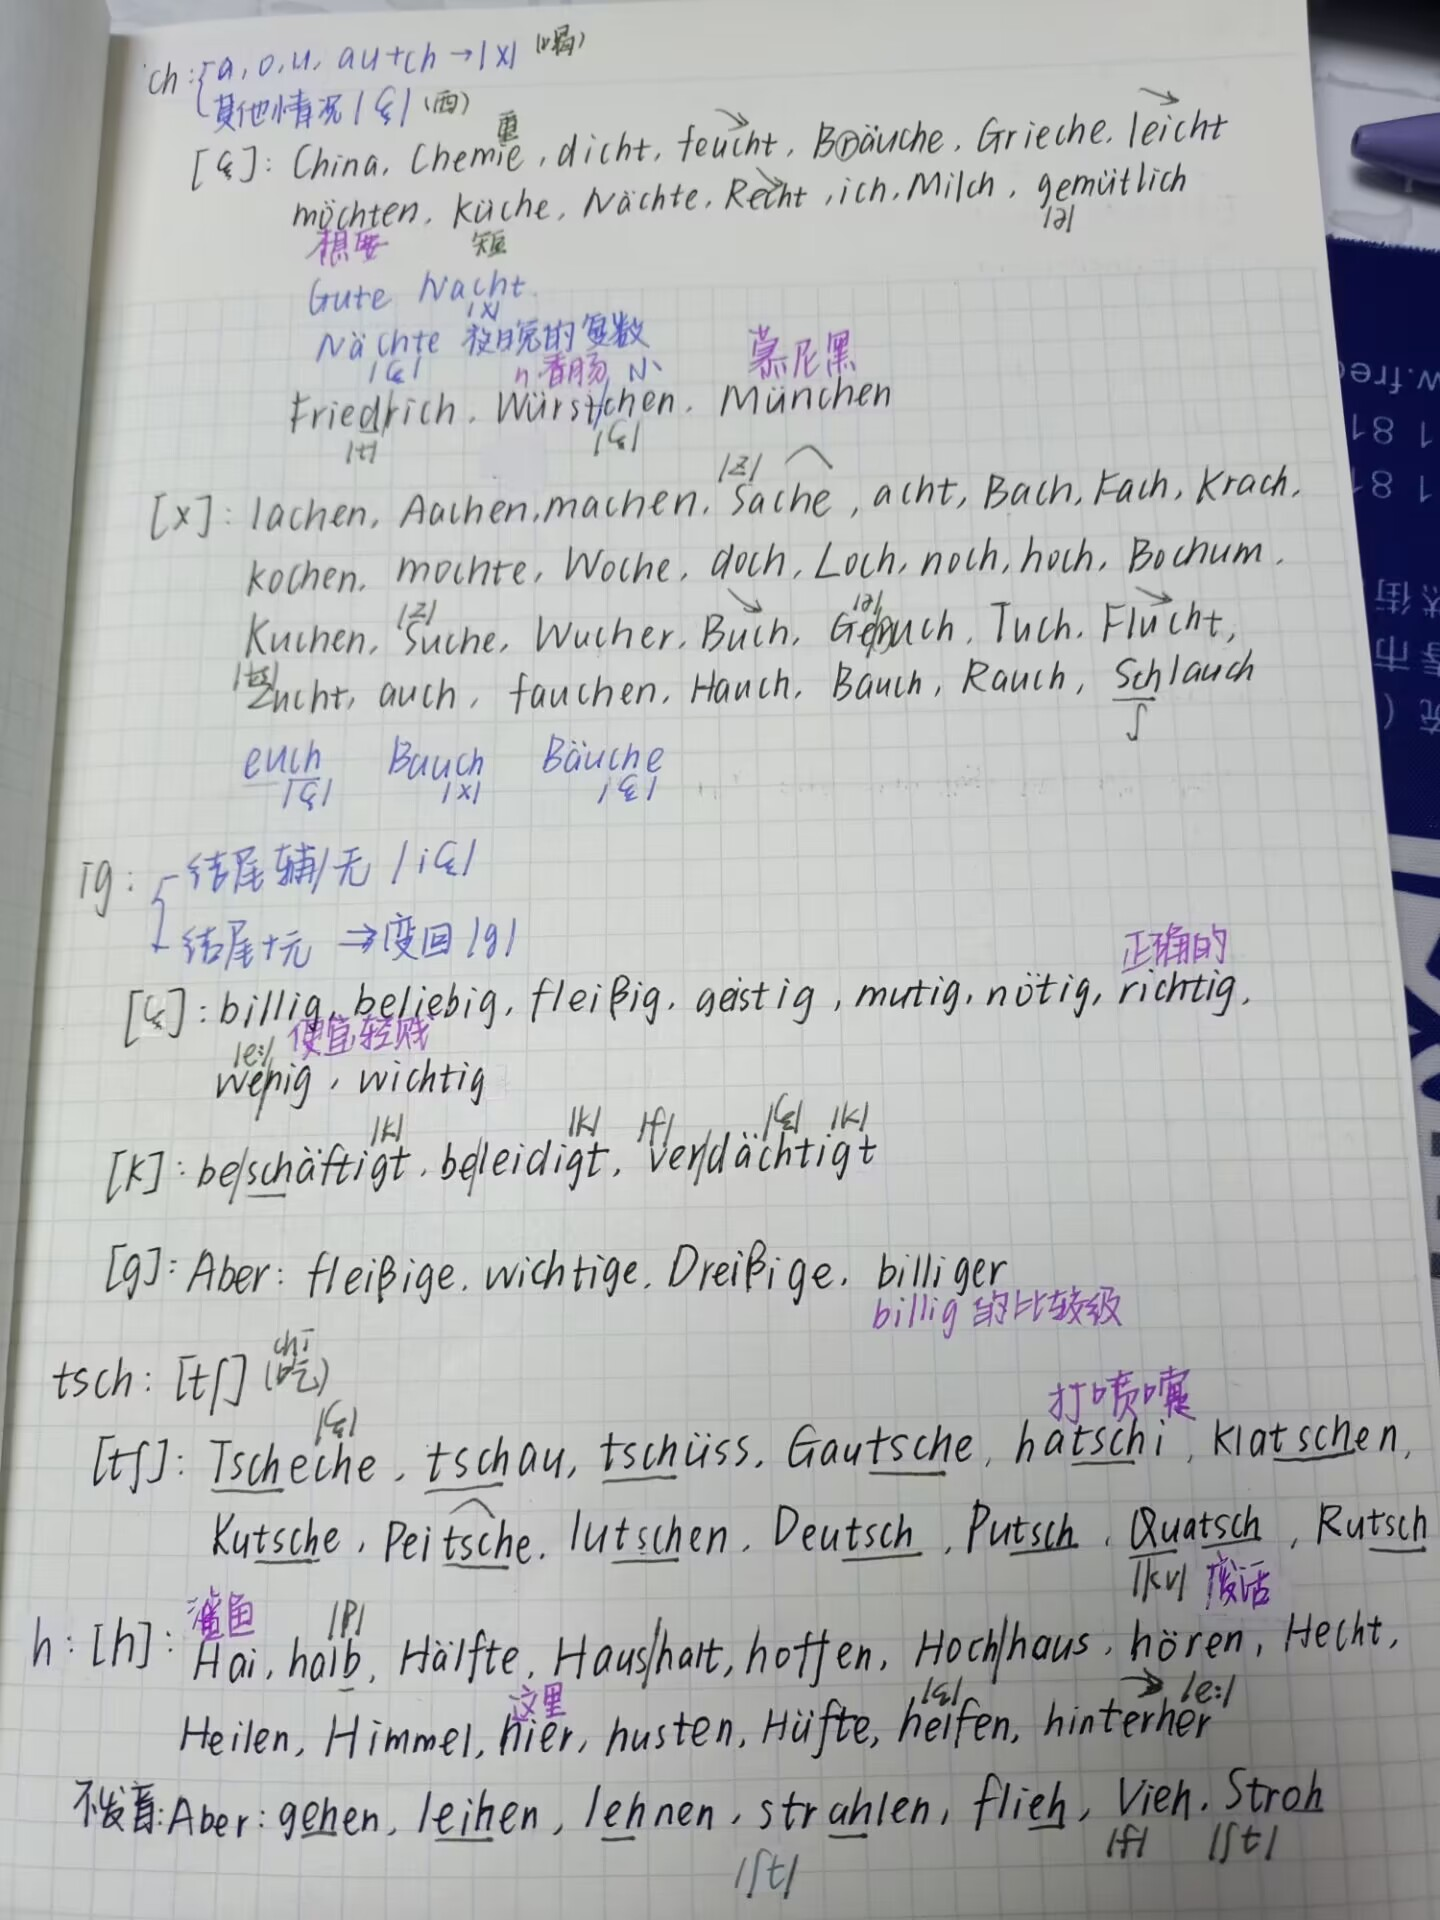 ch: a, o, u, au+ch → |x| (喝)
其他情况 |ç| (西)
重
[ç]: China, Chemie, dicht, feucht, Bräuche, Grieche, leicht
möchten, Küche, Nächte, Recht, ich, Milch, gemütlich
想要 短 |ə|
Gute Nacht.
|x|
Nächte 夜晚的复数
|ç| n.香肠 小 慕尼黑
Friedrich, Würstchen, München
|t| |ç|
|z|
[x]: lachen, Aachen, machen, Sache, acht, Bach, Fach, Krach,
kochen, mochte, Woche, doch, Loch, noch, hoch, Bochum,
|z| |ə|
Kuchen, Suche, Wucher, Buch, Tuch, Flucht,
|ts|
Zucht, auch, fauchen, Hauch, Bauch, Rauch, Schlauch
ʃ
euch Bauch Bäuche
|ç| |x| |ç|
ig: 结尾辅/无 |iç|
结尾+元 ⇒ 变回 |g|
正确的
[ç]: billig, beliebig, fleißig, geistig, mutig, nötig, richtig,
|e:| 便宜轻贱
wenig, wichtig
|k| |k| |f| |ç| |k|
[k]: be/schäftigt, be/leidigt, ver/dächtigt
[g]: Aber: fleißige, wichtige, Dreißige, billiger
billig 的比较级
chī
tsch: [tʃ] (吃)
|ç| 打喷嚏
[tʃ]: Tscheche, tschau, tschüss, Gautsche, hatschi, klatschen,
Kutsche, Peitsche, lutschen, Deutsch, Putsch, Quatsch, Rutsch
|kv| 废话
鲨鱼 |p|
h: [h]: Hai, halb, Hälfte, Haus/halt, hoffen, Hoch/haus, hören, Hecht,
这里 |e:|
Heilen, Himmel, hier, husten, Hüfte, helfen, hinterher
不发音: Aber: gehen, leihen, lehnen, strahlen, flieh, Vieh, Stroh
|ʃt| |f| |ʃt|